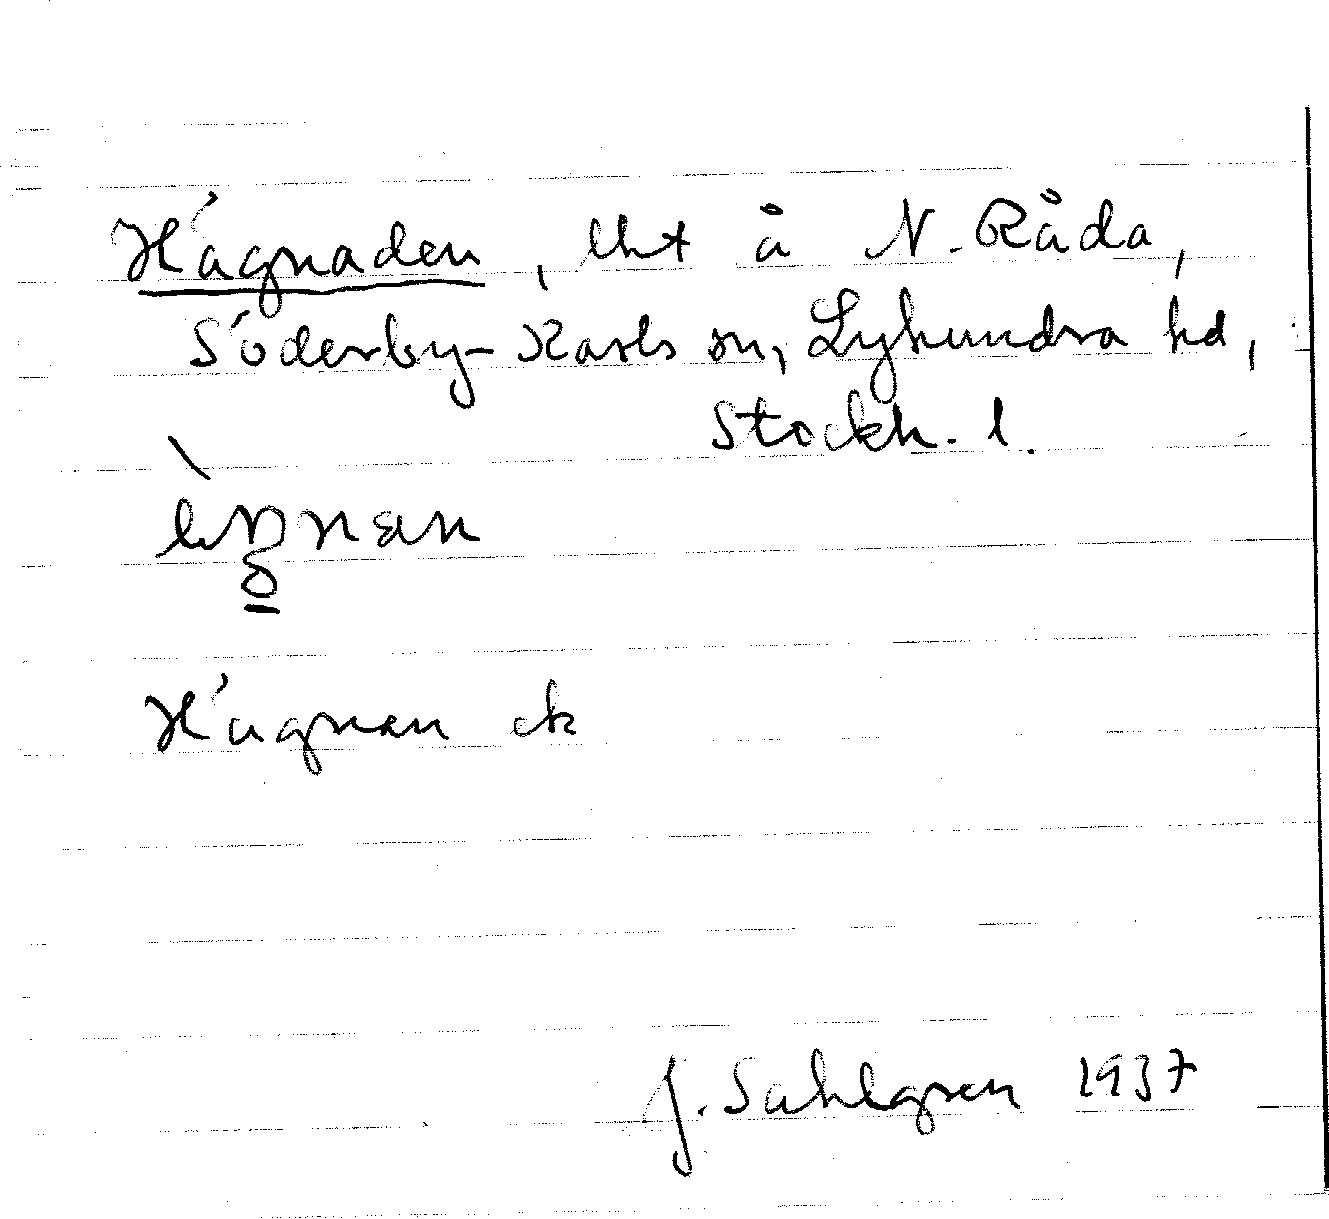 Hägnaden, lht å N. Råda,
Söderby-Karls sn, Lyhundra hd,
Stockh. l.
Hägnan ek
J. Sahlgren 1937